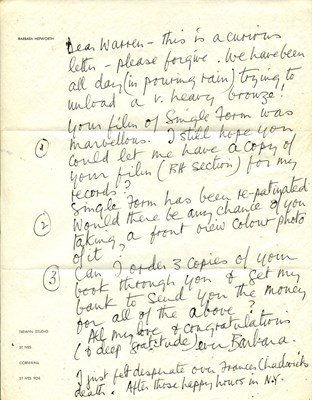 BARBARA HEPWORTH
Dear Warren – this is a curious
letter – please forgive. We have been
all day (in pouring rain) trying to
unload a v. heavy bronze!
① Your film of Single Form was
marvellous. I still hope you
could let me have a copy of
your film (BH section) for my
records?
② Single Form has been re-patinated.
Would there be any chance of you
taking a front view colour photo
of it.
③ Can I order 3 copies of your
book through you & get my
bank to send you the money
for all of the above?
All my love & congratulations
(& deep gratitude) ever Barbara.
TREWYN STUDIO
ST IVES
CORNWALL
ST IVES
I just felt desperate over Frances Chadwick's
death. After those happy hours in N.Y.